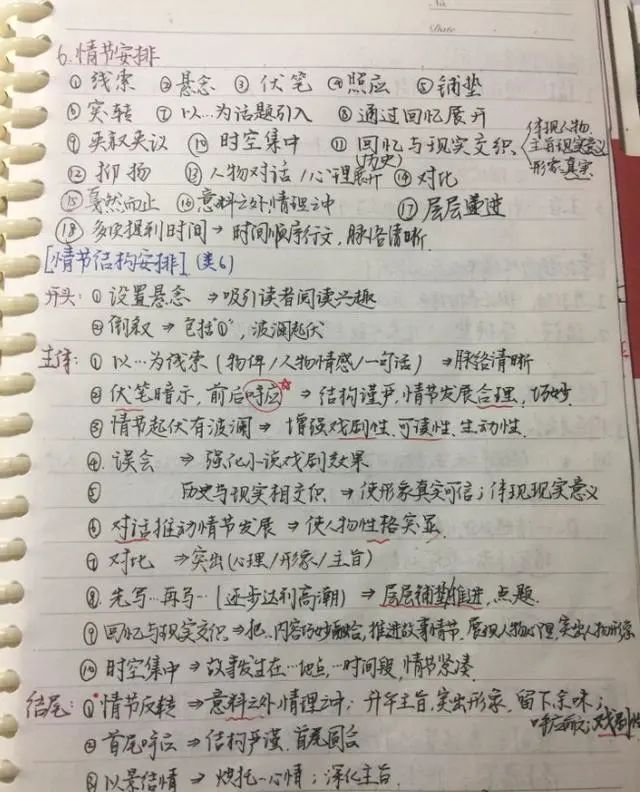 No.
Date
6.情节安排
①线索 ②悬念 ③伏笔 ④照应 ⑤铺垫
⑥突转 ⑦以…为话题引入 ⑧通过回忆展开
⑨夹叙夹议 ⑩时空集中 ⑪回忆与现实交织
(历史)
体现人物
主旨现实意义
形象真实
⑫抑扬 ⑬人物对话/心理展开 ⑭对比
⑮戛然而止 ⑯意料之外,情理之中 ⑰层层递进
⑱多次提到时间→时间顺序行文,脉络清晰.
[情节结构安排](类6)
开头:①设置悬念⇒吸引读者阅读兴趣
②倒叙⇒包括"①",波澜起伏
主体:①以…为线索(物件/人物情感/一句话)⇒脉络清晰
②伏笔暗示,前后呼应☆⇒结构谨严,情节发展合理,巧妙.
③情节起伏有波澜⇒增强戏剧性、可读性、生动性.
④误会⇒强化小说戏剧效果
⑤历史与现实相交织⇒使形象真实可信;体现现实意义
⑥对话推动情节发展⇒使人物性格突显.
⑦对比⇒突出(心理/形象/主旨)
⑧先写…再写…(逐步达到高潮)⇒层层铺垫推进,点题.
⑨回忆与现实交织⇒把…内容巧妙融合,推进故事情节,展现人物心理,突出人物形象
⑩时空集中⇒故事发生在…地点,…时间段,情节紧凑.
结尾:①情节反转⇒意料之外,情理之中;升华主旨,突出形象,留下余味;
呼应前文;戏剧性
②首尾呼应⇒结构严谨,首尾圆合
③以景结情⇒烘托…心情;深化主旨.